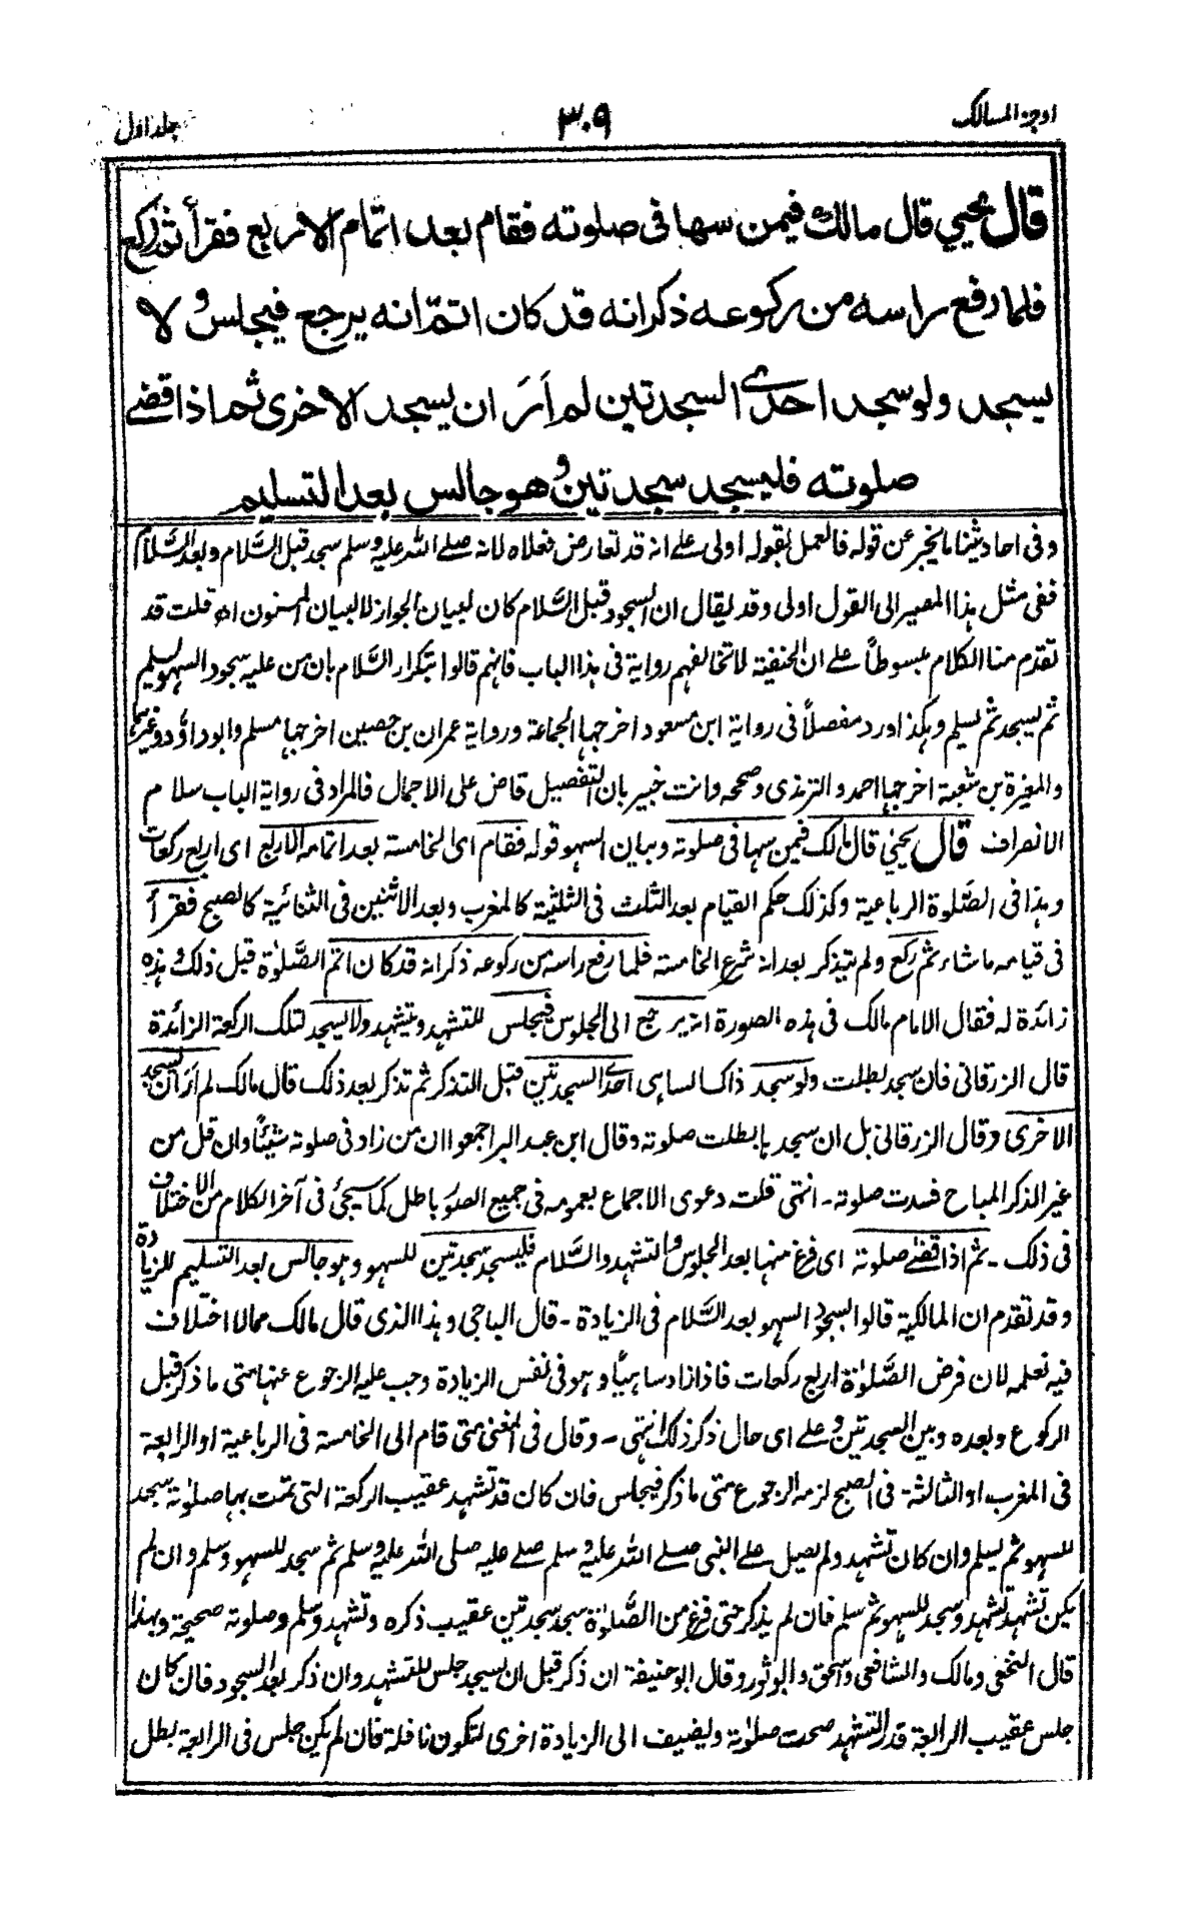 اوجز المسالك
٣٠٩
جلد اول
قال يحيي قال مالك فيمن سها فى صلوته فقام بعد اتمام الاربع فقرأ ثم ركع
فلما رفع راسه من ركوعه ذكر انه قد كان اتمّ انه يرجع فيجلس ولا
يسجد ولو سجد احدى السجدتين لم اَرَ ان يسجد الاخرى ثم اذا قضے
صلوته فليسجد سجدتين وهو جالس بعد التسليم
وفى احاديثنا ما يخبر عن قوله فالعمل بقوله اولى علے انه قد تعارض فعلاه لانه صلے اللّٰه عليه وسلم سجد قبل السَّلام وبعد السَّلام
ففى مثل هذا المصير الى القول اولى وقد يقال ان السجود قبل السَّلام كان لبيان الجواز لا لبيان المسنون اھ قلت قد
تقدم منا الكلام مبسوطاً علے ان الحنفية لا تخالفهم رواية فى هذا الباب فانهم قالوا بتكرار السَّلام بان من عليه سجود السهو يسلم
ثم يسجد ثم يسلم وهكذا ورد مفصلاً فى رواية ابن مسعود اخرجها الجماعة ورواية عمران بن حصين اخرجها مسلم وابو داؤد وغيرهما
والمغيرة بن شعبة اخرجها احمد والترمذى وصححه وانت خبير بان التفصيل قاض على الاجمال فالمراد فى رواية الباب سلام
الانصراف قال يحيٰى قال مالك فيمن سها فى صلوته وبيان السهو قوله فقام اى الخامسة بعد اتمامه الاربع اى اربع ركعات
وهذا فى الصَّلوة الرباعية وكذلك حكم القيام بعد الثلث فى الثلثية كالمغرب وبعد الاثنين فى الثنائية كالصبح فقرأ
فى قيامه ما شاء ثم ركع ولم يتذكر بعد انه شرع الخامسة فلما رفع راسه من ركوعه ذكر انه قد كان اتم الصَّلوٰة قبل ذلك وهذه
زائدة له فقال الامام مالك فى هذه الصورة انه يرجع الى الجلوس فيجلس للتشهد ويتشهد ولا يسجد لتلك الركعة الزائدة
قال الزرقانى فان سجد بطلت ولو سجد ذاك الساهى احدے السجدتين قبل التذكر ثم تذكر بعد ذلك قال مالك لم اَرَ ان يسجد
الاخرى وقال الزرقانى بل ان سجد ها بطلت صلوته وقال ابن عبد البر اجمعوا ان من زاد فى صلوته شيئاً وان قل من
غير الذكر المباح فسدت صلوته - انتهى قلت دعوى الاجماع بعمومه فى جميع الصوَر باطل كما سيجئ فى آخر الكلام من الاختلاف
فى ذلك - ثم اذا قضے صلوته اى فرغ منها بعد الجلوس والتشهد والسَّلام فليسجد سجدتين للسهو وهو جالس بعد التسليم للزيادة
وقد تقدم ان المالكية قالوا السجود السهو بعد السَّلام فى الزيادة - قال الباجى وهذا الذى قال مالك مما لا اختلاف
فيه نعلمه لان فرض الصَّلوٰة اربع ركعات فاذا زاد ساهياً وهو فى نفس الزيادة وجب عليه الرجوع عنها متى ما ذكر قبل
الركوع وبعده وبين السجدتين وعلے اى حال ذكر ذلك انتهى - وقال فى المغنى متى قام الى الخامسة فى الرباعية او الرابعة
فى المغرب او الثالثة - فى الصبح لزمه الرجوع متى ما ذكر فيجلس فان كان قد تشهد عقيب الركعة التى تمت بها صلوٰته سجد
للسهو ثم يسلم وان كان تشهد ولم يصل علے النبى صلے اللّٰه عليه وسلم صلے عليه صلى اللّٰه عليه وسلم ثم سجد للسهو وسلم وان لم
يكن تشهد تشهد وسجد للسهو ثم سلم فان لم يذكر حتى فرغ من الصَّلوٰة سجد سجدتين عقيب ذكره وتشهد وسلم وصلوته صحيحة وبهذا
قال النخعى ومالك والشافعى واسحٰق وابو ثور وقال ابو حنيفة ان ذكر قبل ان يسجد جلس للتشهد وان ذكر بعد السجود فان كان
جلس عقيب الرابعة قدر التشهد صحت صلوته ويضيف الى الزيادة اخرى لتكون نافلة فان لم يكن جلس فى الرابعة بطل